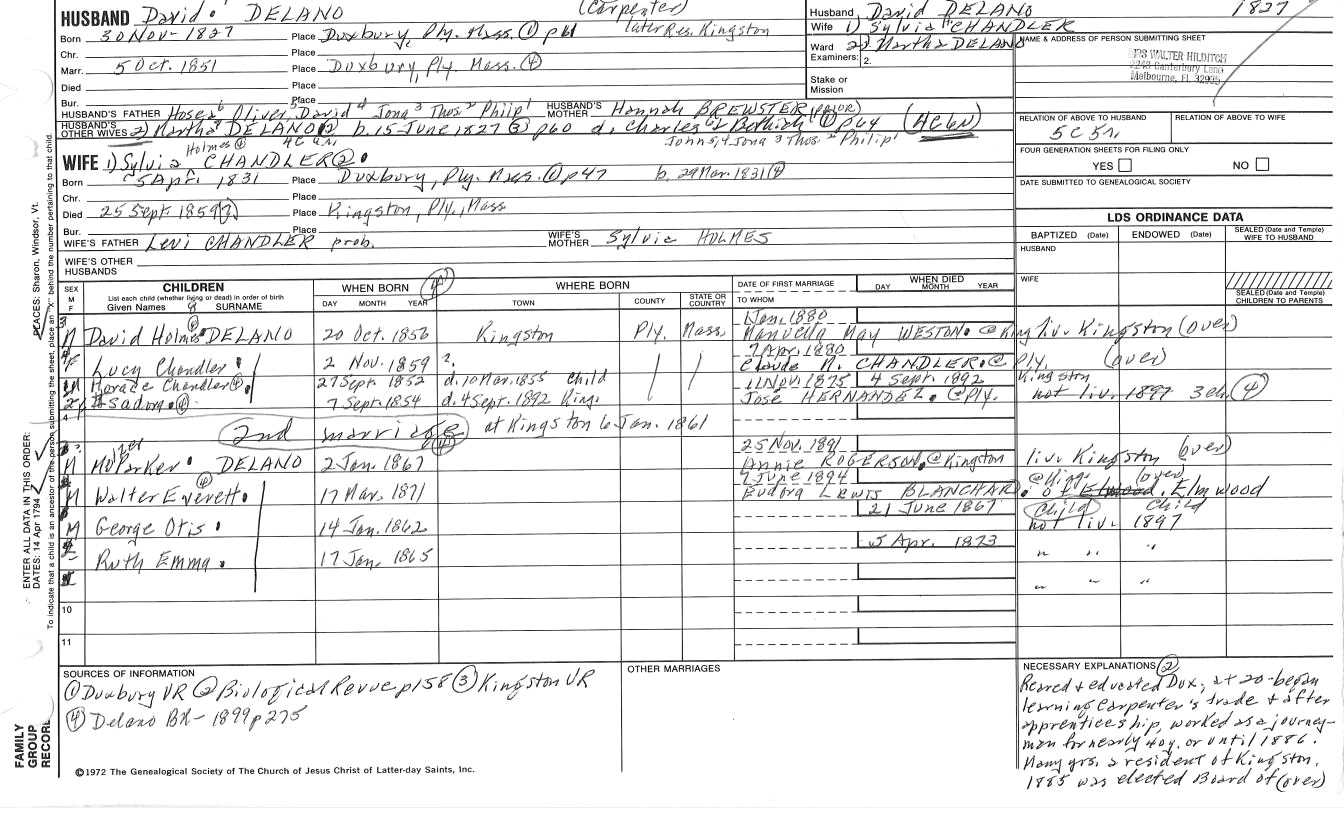 HUSBAND David DELANO (Carpenter)
Born 30 NOV - 1827 Place Duxbury, Ply. Mass. ① p61 later Res. Kingston
Chr. Place
Marr. 5 Oct. 1851 Place Duxbury, Ply. Mass. ④
Died Place
Bur. Place
HUSBAND'S FATHER Hosea 6 Oliver, 5 David 4 Jona 3 Thos. 2 Philip 1 HUSBAND'S MOTHER Hannah BREWSTER (PRIOR)
HUSBAND'S OTHER WIVES 2) Martha DELANO ② b. 15 June 1827 ③ p60 d. Charles & ① p64 (AC GN)
Husband David DELANO 1827
Wife 1) Sylvia CHANDLER
Ward 2) Martha DELANO
Examiners: 2.
Stake or Mission
NAME & ADDRESS OF PERSON SUBMITTING SHEET
WALTER HILDITCH
Canterbury Lane
Melbourne, FL
RELATION OF ABOVE TO HUSBAND
RELATION OF ABOVE TO WIFE
FOUR GENERATION SHEETS FOR FILING ONLY
YES NO
DATE SUBMITTED TO GENEALOGICAL SOCIETY
LDS ORDINANCE DATA
BAPTIZED (Date) ENDOWED (Date) SEALED (Date and Temple) WIFE TO HUSBAND
HUSBAND
WIFE
SEALED (Date and Temple) CHILDREN TO PARENTS
Holmes ④
Johns, 4 Jona 3 Thos. 2 Philip 1
WIFE 1) Sylvia CHANDLER ②
Born 5 Apr. 1831 Place Duxbury, Ply. Mass. ① p47 b. 29 Mar. 1831 ④
Chr. Place
Died 25 Sept. 1859 Place Kingston, Ply., Mass
Bur. Place
WIFE'S FATHER Levi CHANDLER prob. WIFE'S MOTHER Sylvia HOLMES
WIFE'S OTHER HUSBANDS
SEX M F
CHILDREN
List each child (whether living or dead) in order of birth
Given Names 8 SURNAME
WHEN BORN ④
DAY MONTH YEAR
WHERE BORN
TOWN COUNTY STATE OR COUNTRY
DATE OF FIRST MARRIAGE
TO WHOM
WHEN DIED
DAY MONTH YEAR
1 Jan. 1880
M David Holmes DELANO 20 Oct. 1856 Kingston Ply. Mass. May WESTON @ King liv. Kingston (over)
7 Apr. 1880
Lucy Chandler 2 Nov. 1859 ?. Claude N. CHANDLER @ Ply. (over)
Horace Chandler ④ 27 Sept. 1852 d. 10 Mar. 1855 Child 11 Nov. 1875 4 Sept. 1892 Kingston
Isadora ④ 7 Sept. 1854 d. 4 Sept. 1892 King. Jose HERNANDEZ @ Ply. not liv. 1897 3 ch. ④
2nd marriage ④ at Kingston 6 Jan. 1861
25 Nov. 1891
M Parker DELANO 2 Jan. 1867 Annie ROGERSON @ Kingston liv. Kingston (over)
7 June 1894 @ King. (over)
M Walter Everett 17 Mar. 1871 Eudora LEWIS BLANCHARD of Elmwood, Elmwood
21 June 1867 Child Child
M George Otis 14 Jan. 1862 not liv. 1897
5 Apr. 1873
Ruth Emma 17 Jan. 1865 " " "
" " "
10
11
SOURCES OF INFORMATION
① Duxbury VR ② Biological Revue p158 ③ Kingston VR
④ Delano BK - 1899 p 275
OTHER MARRIAGES
NECESSARY EXPLANATIONS ②
Reared & educated Dux; at 20 - began
learning Carpenter's trade & after
apprenticeship, worked as a journey-
man for nearly 40 y. or until 1886.
Many yrs. a resident of Kingston.
1885 was elected Board of (over)
©1972 The Genealogical Society of The Church of Jesus Christ of Latter-day Saints, Inc.
FAMILY GROUP RECORD
ENTER ALL DATA IN THIS ORDER:
DATES: 14 Apr 1794
PLACES: Sharon, Windsor, Vt.
To indicate that a child is an ancestor of the person submitting the sheet, place an "X" behind the number pertaining to that child.